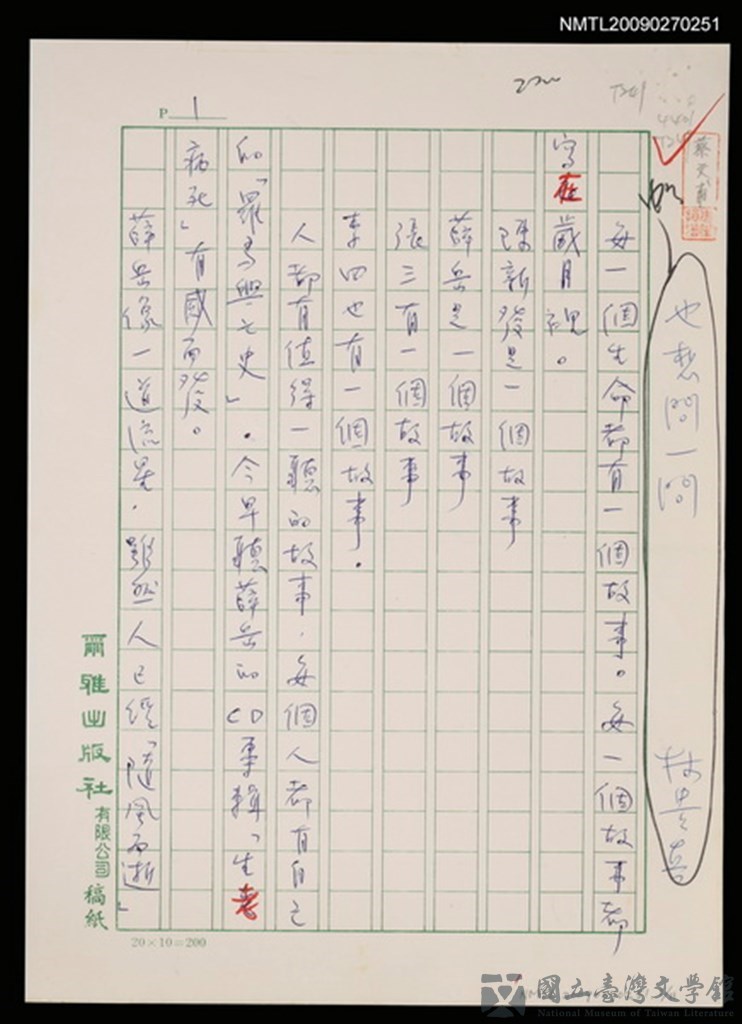 NMTL20090270251
也想問一問 林貴真
蔡文甫
P 1
每一個生命都有一個故事。每一個故事都
寫在歲月裡。
陳新發是一個故事
薛岳是一個故事
張三有一個故事
李四也有一個故事。
人都有值得一聽的故事,每個人都有自己
的「羅馬興亡史」。今早聽薛岳的CD專輯「生老
病死」有感而發。
薛岳像一道流星,雖然人已經「隨風而逝」
爾雅出版社有限公司稿紙
20×10=200
國立臺灣文學館
National Museum of Taiwan Literature